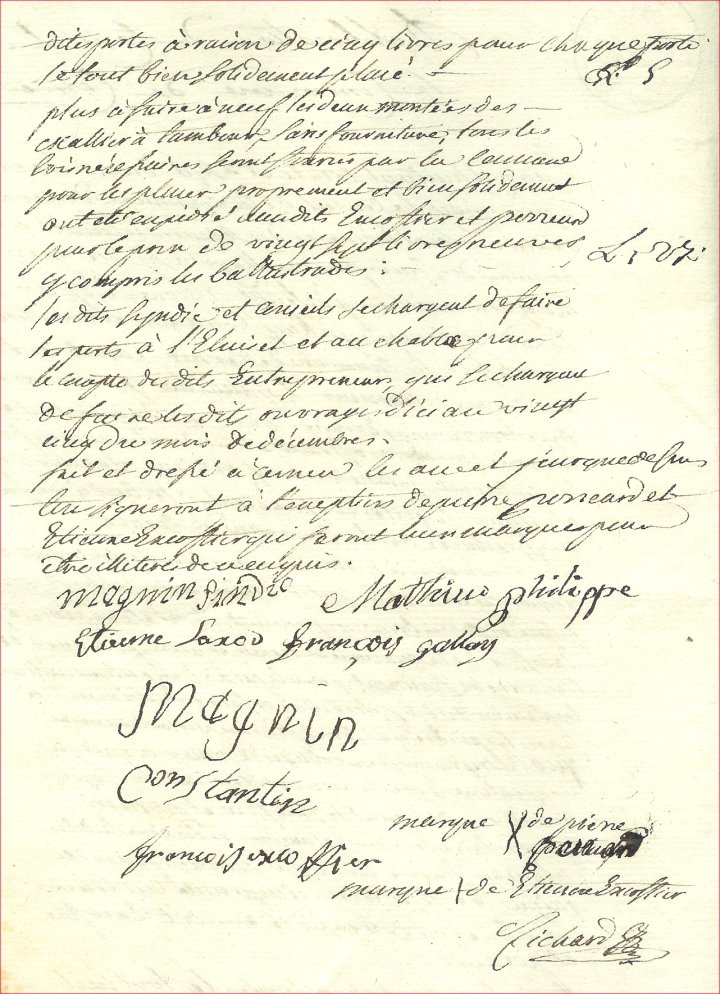 dites portes à raison de cinq livres pour chaque porte
le tout bien solidement placé. L. 5
plus à faire à neuf les deux montées des
escallier à tambour, sans fourniture, tous les
bois nécessaires seront fournis par la commune
pour les placer proprement et bien solidement
ont été expédié audit Encoffier et
pour le prix de vingt sept livres neuves, L. 27.
y compris les ballustrades :
les dits syndic et conseils se chargent de faire
à l'Eluiset et au chable pour
le compte des dits Entrepreneurs, qui se chargent
de faire les dits ouvrages d'ici au vingt
cinq du mois de décembre.
fait et dressé à les an et jour que dessus
signeront à l'exception de pierre et
Etienne Encoffier qui feront leur marque pour
être illiteré de ce enquis.
magnin sindic Mathieu philippe
Etienne Saxod françois gallay
Magnin
Constantin
marque X de pierre
francois excoffier
marque + de Etienne Excoffier
Richard